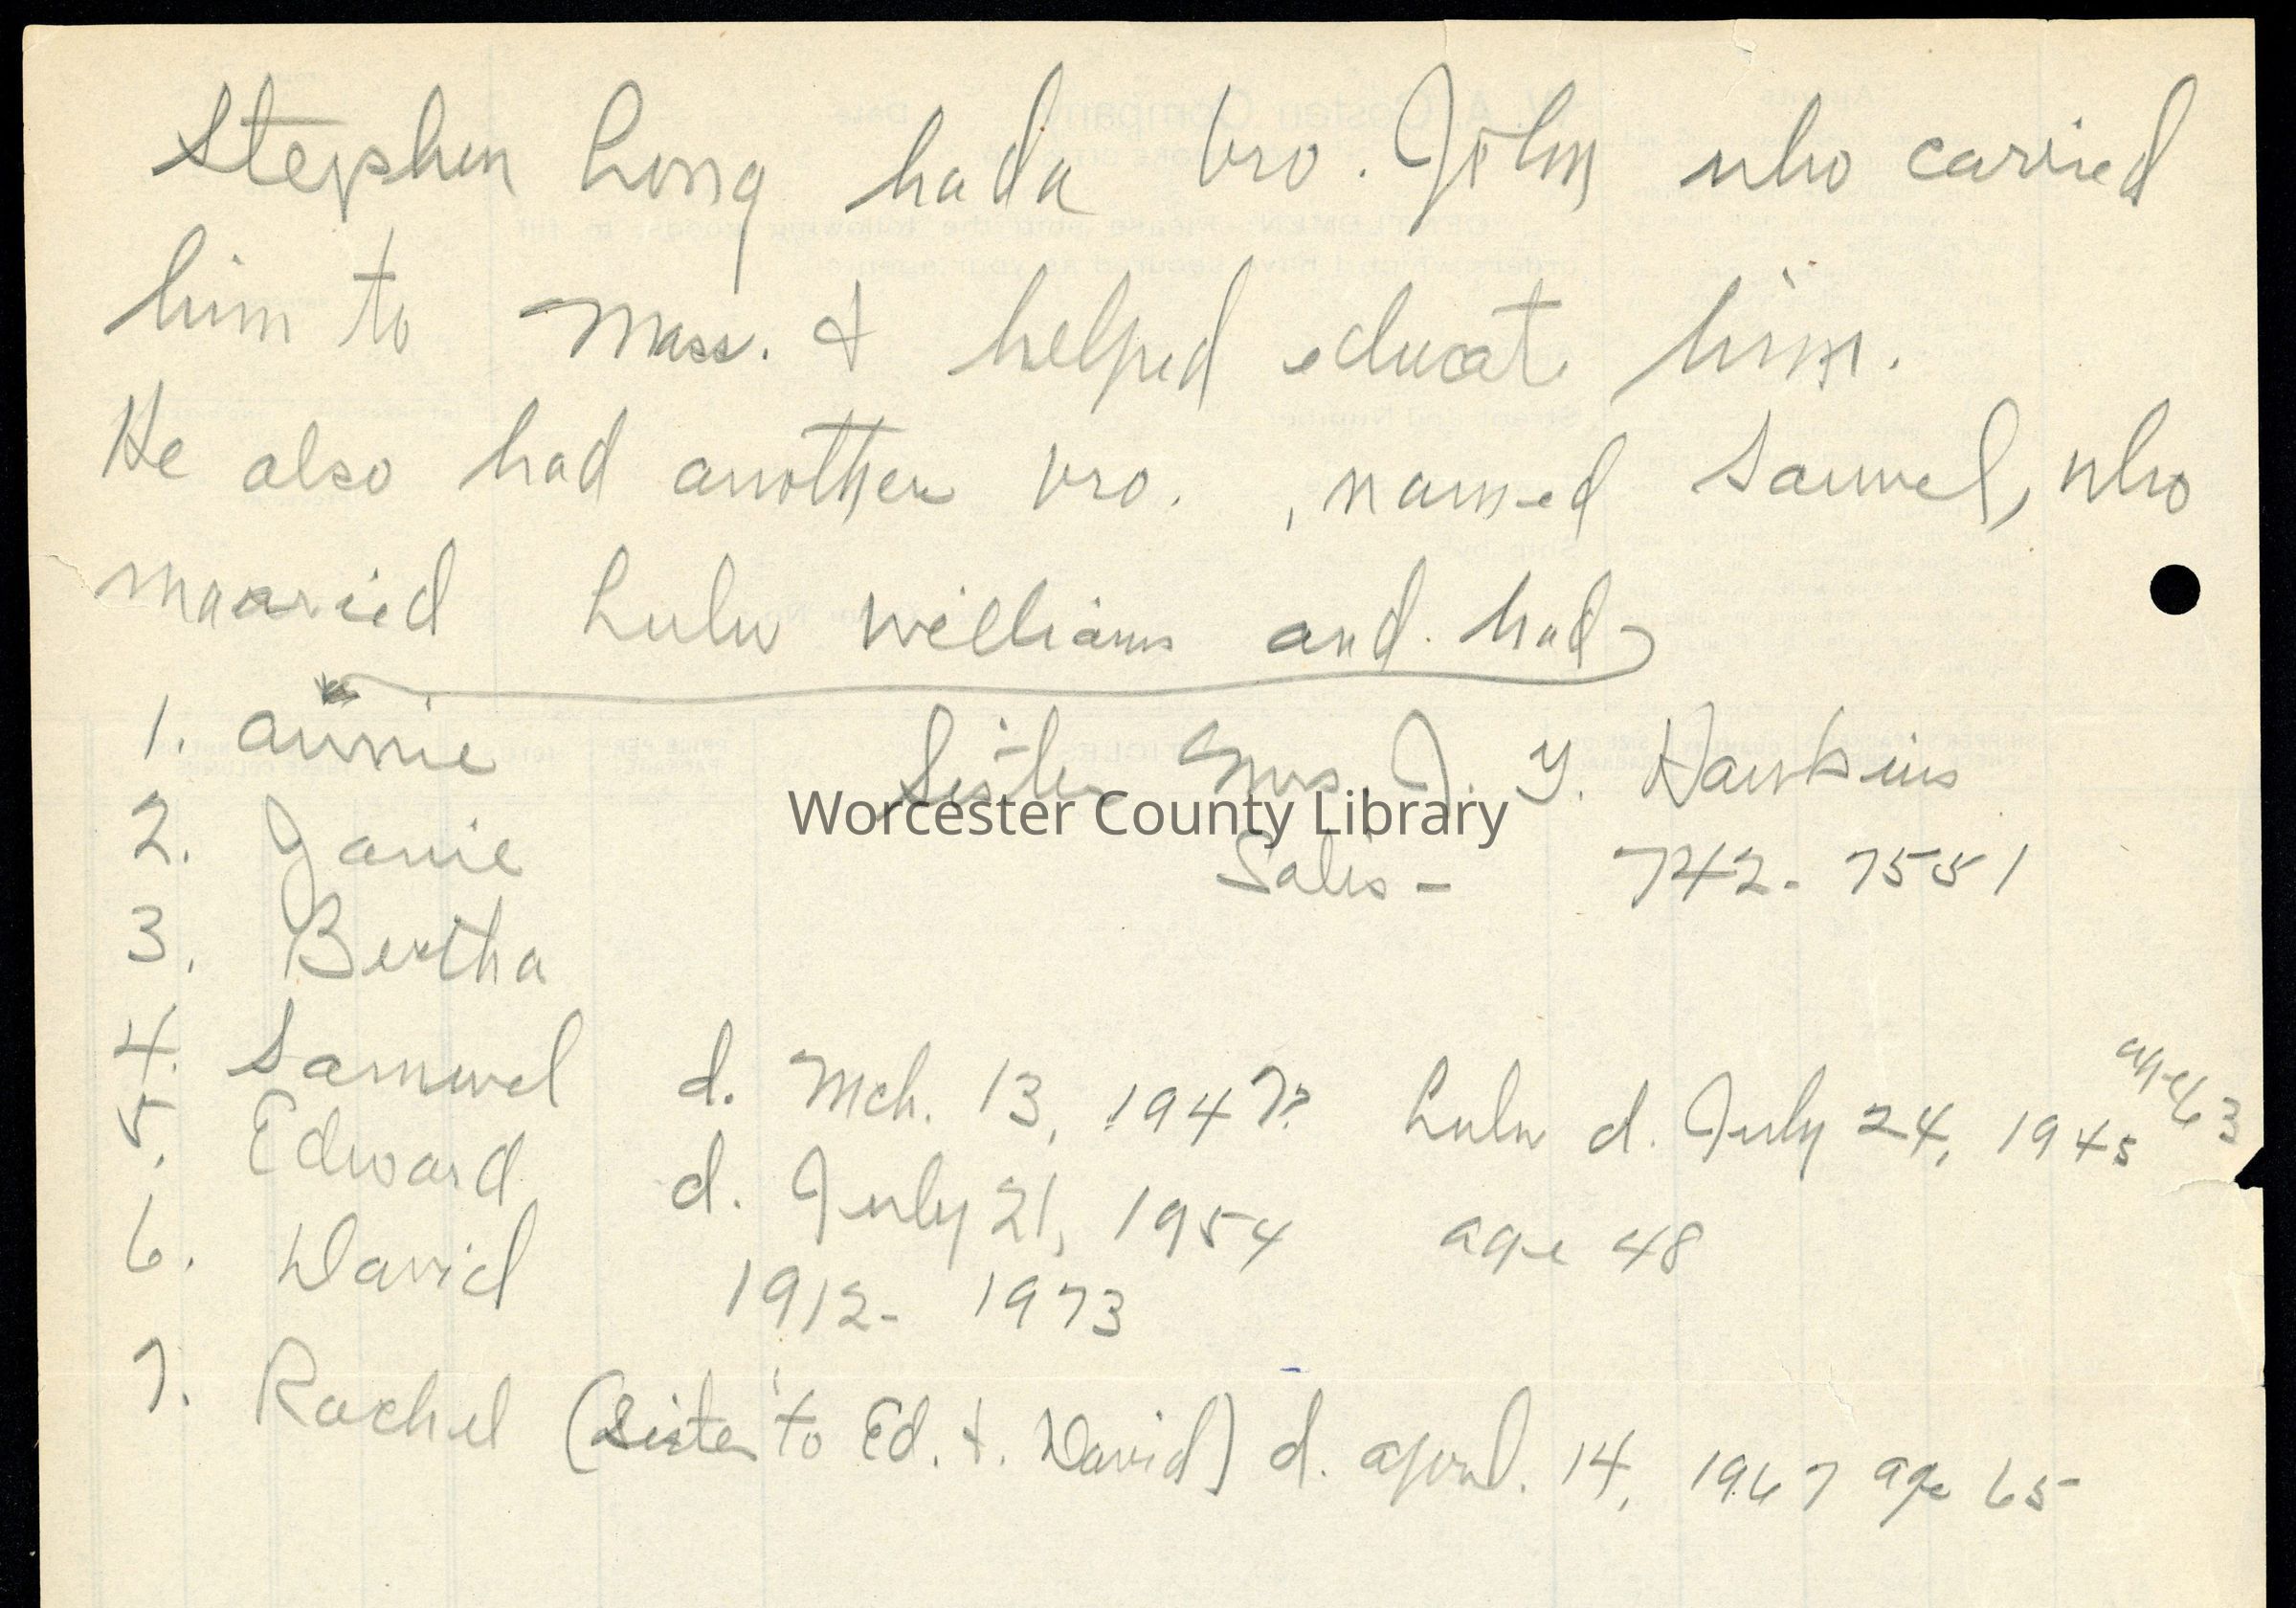 Stephen Long had a bro. John who carried
him to Mass. & helped educate him.
He also had another bro. , named Samuel, who
maaried Lulu Williams and had
1. Annie
Sister Mrs. J. Y. Hawkins
2. Janie
Worcester County Library
Salis - 742-7551
3. Bertha
4. Samuel d. Mch. 13, 1947? Lulu d. July 24, 1945 age 63
5. Edward d. July 21, 1954 age 48
6. David 1912 - 1973
7. Rachel (Sister to Ed. & David) d. April. 14, 1967 age 65